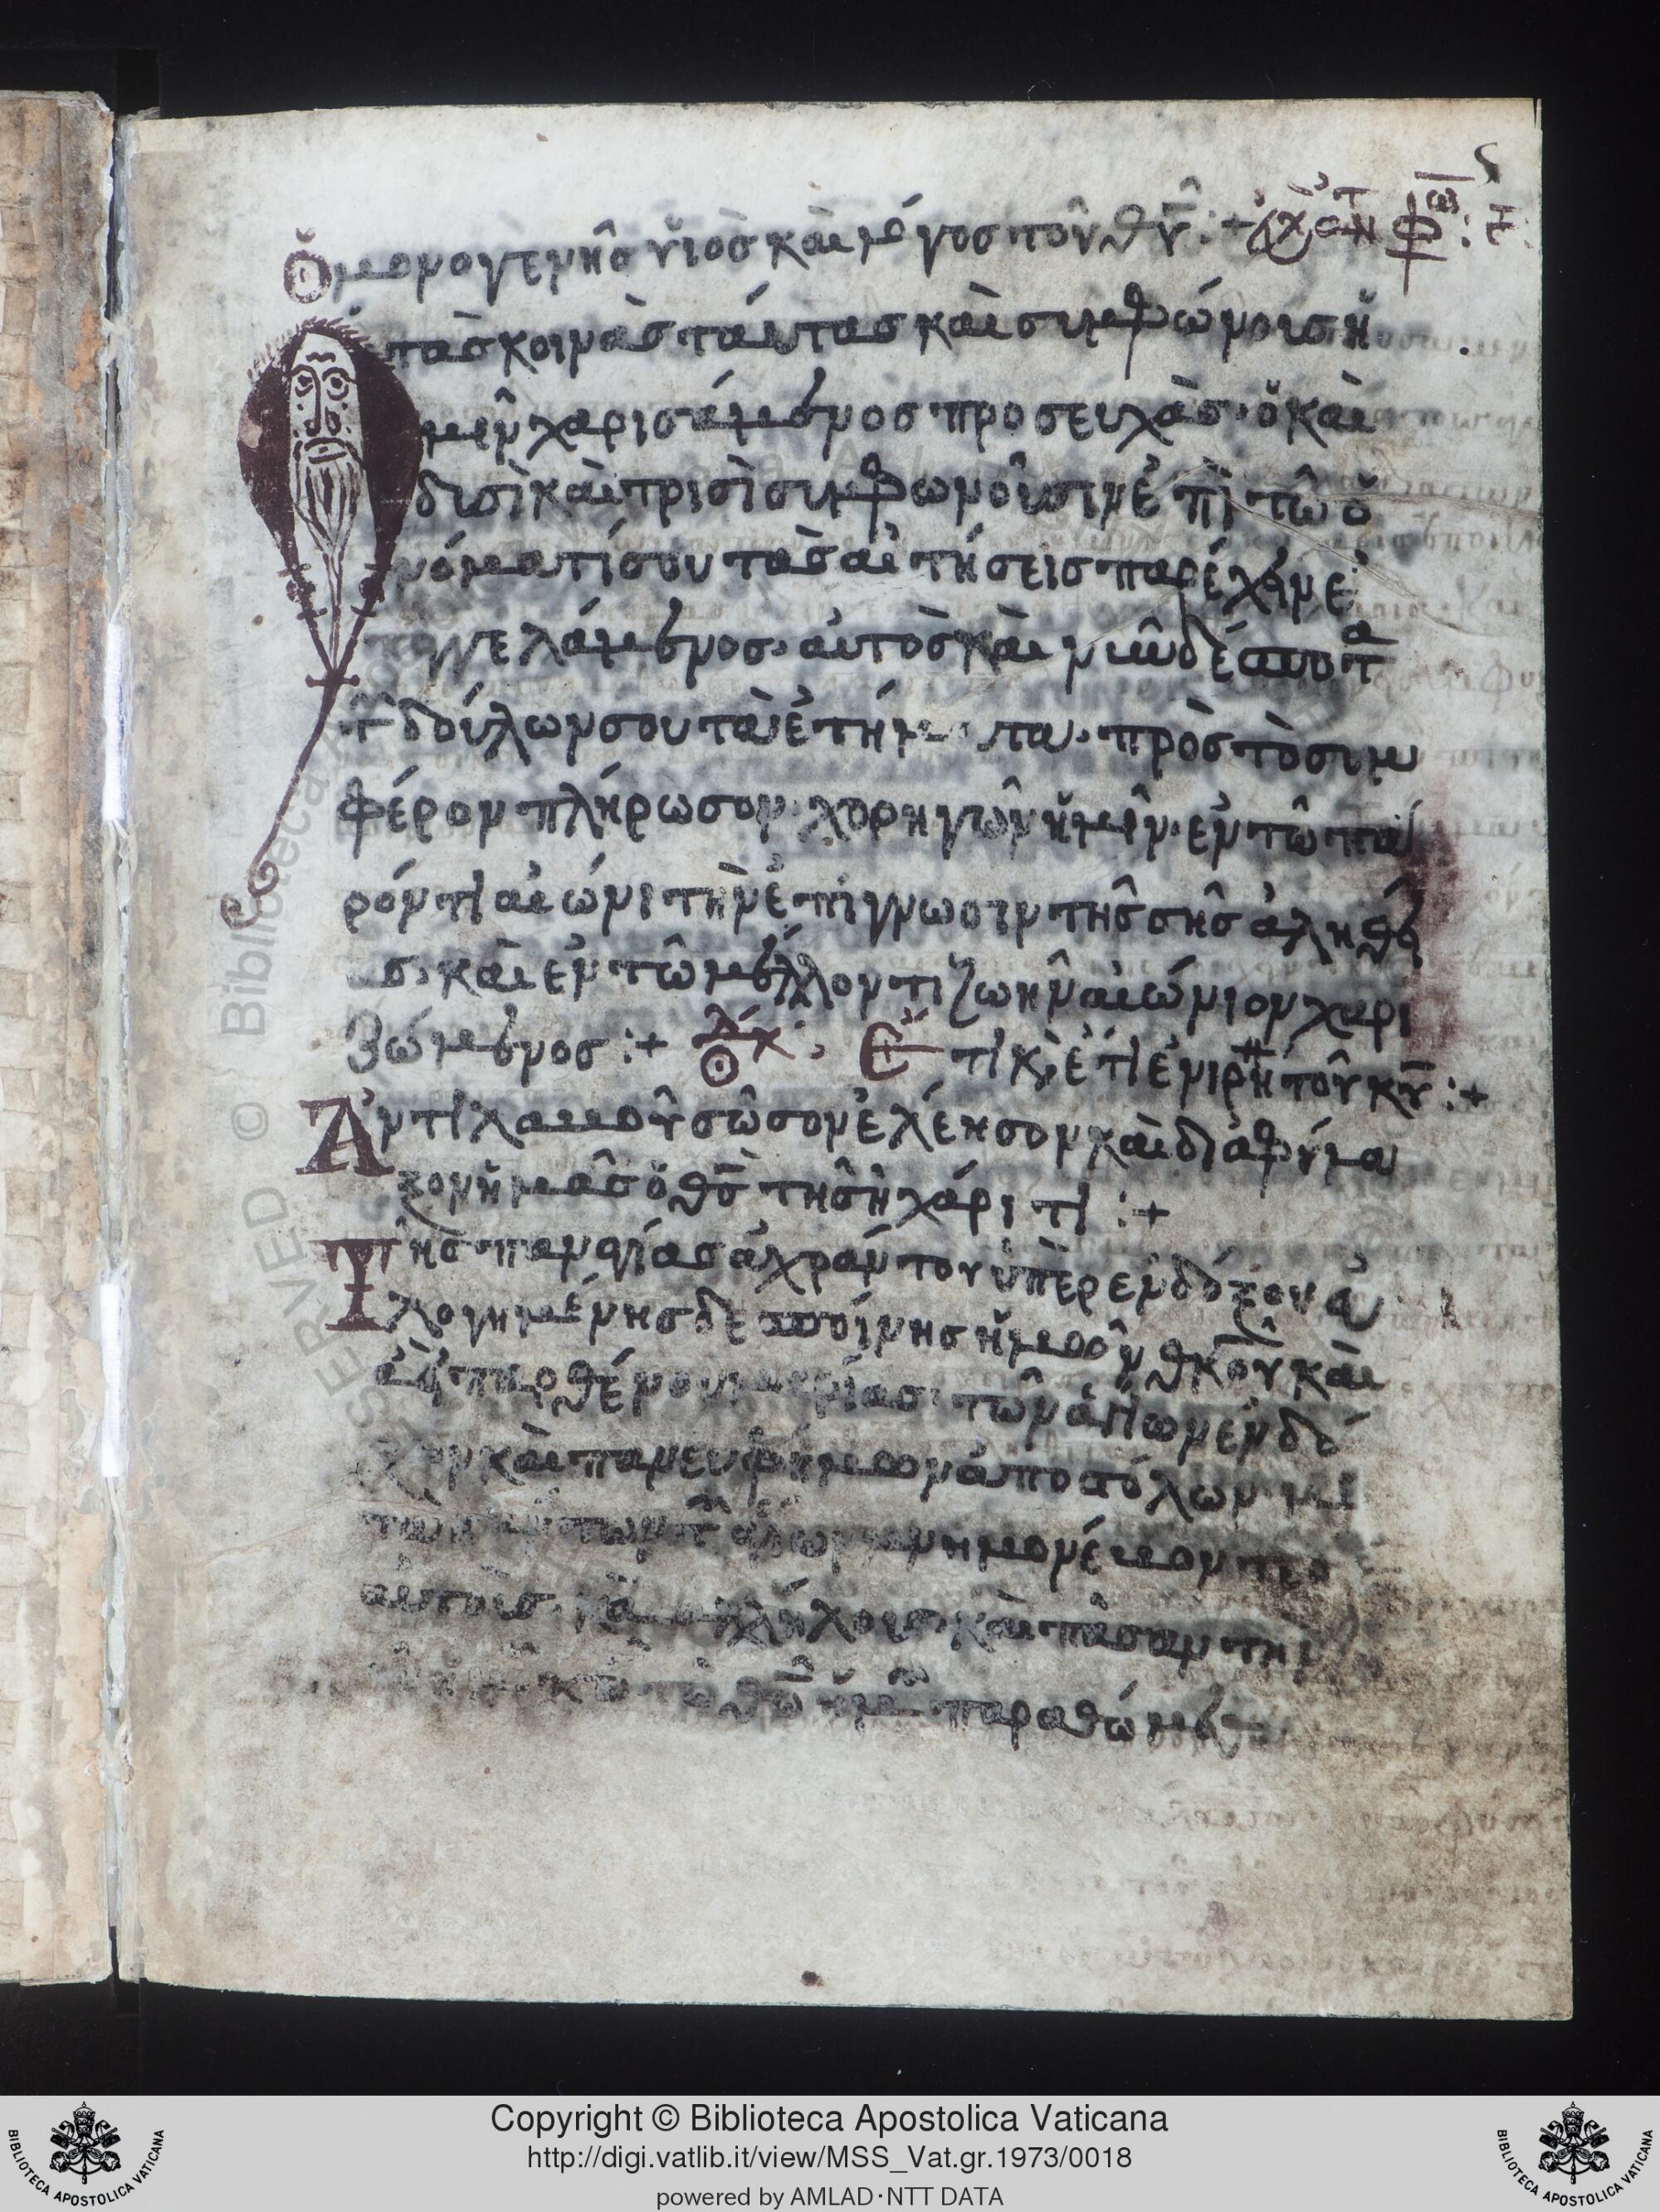 ς
ὁ μονογενὴς ὑιὸς καὶ λόγος τοῦ θῦ :+ εὐχ ἀντ φω γ :
Ὁ τὰς κοινὰς ταύτας καὶ συμφώνοισ ἡ
μῖν χαρισάμενος προσευχὰς· ὁ καὶ
δυσὶ καὶ τρισὶ συμφωνοῦσιν ἐπὶ τῶ ὀ
νόματί σου τὰς αἰτήσεις παρέχειν ἐ
παγγελάμενος· αὐτὸς καὶ νῦν δέσποτα
τ δούλων σου τὰ ἐτήματα· πρὸς τὸ συμ
φέρον πλήρωσον· χορηγῶν ἡμῖν· ἐν τῶ πα
ρόντι αἰῶνι τὴν ἐπίγνωσιν τῆς σῆς ἀληθεί
ας· καὶ ἐν τῶ μέλλοντι ζωὴν αἰώνιον χαρι
ζώμενος :+ Ἔτι κ, ἔτι ἐν ιρη τοῦ κῦ :+
Ἀντιλαβοῦ σῶσον ἐλέησον καὶ διαφύλα
ξον ἡμᾶς ὁ θς τῆ σῆ χάριτι :+
Τῆς παναγίας ἀχράντου ὑπὲρ ἐνδόξου εὐ
λογημένης δεσποίνης ἡμῶν θκοῦ καὶ
ἀει παρθένου μαρίας· τῶν ἁγίων ἐνδό
ξων καὶ πανευφήμων ἀποστόλων
πάντων τ ἁγίων μνημονεύσον
αὐτοὺς καὶ ἀλλήλους· καὶ πᾶσαν τὴν
θῶ ἡμῶν παραθώμεθα
Copyright © Biblioteca Apostolica Vaticana
http://digi.vatlib.it/view/MSS_Vat.gr.1973/0018
powered by AMLAD·NTT DATA
BIBLIOTECA APOSTOLICA VATICANA
BIBLIOTECA APOSTOLICA VATICANA